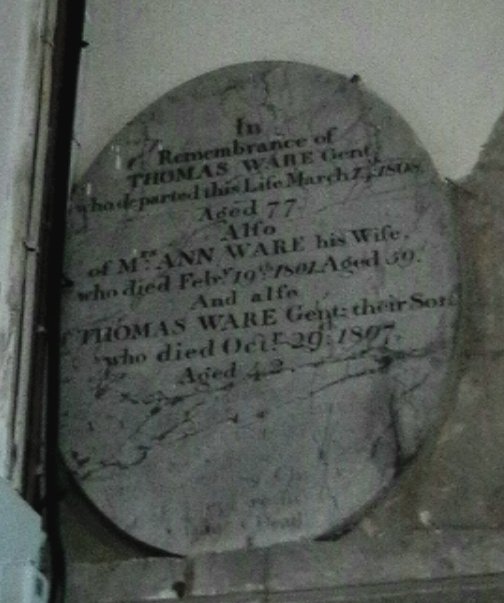 In
Remembrance of
THOMAS WARE Gent.
who departed this Life March 1808.
Aged 77.
Alſo
of Mrs. ANN WARE his Wife,
who died Feby. 19th. 1801. Aged 59.
And alſo
THOMAS WARE Gent: their Son
who died Octr. 29th: 1807.
Aged 42.